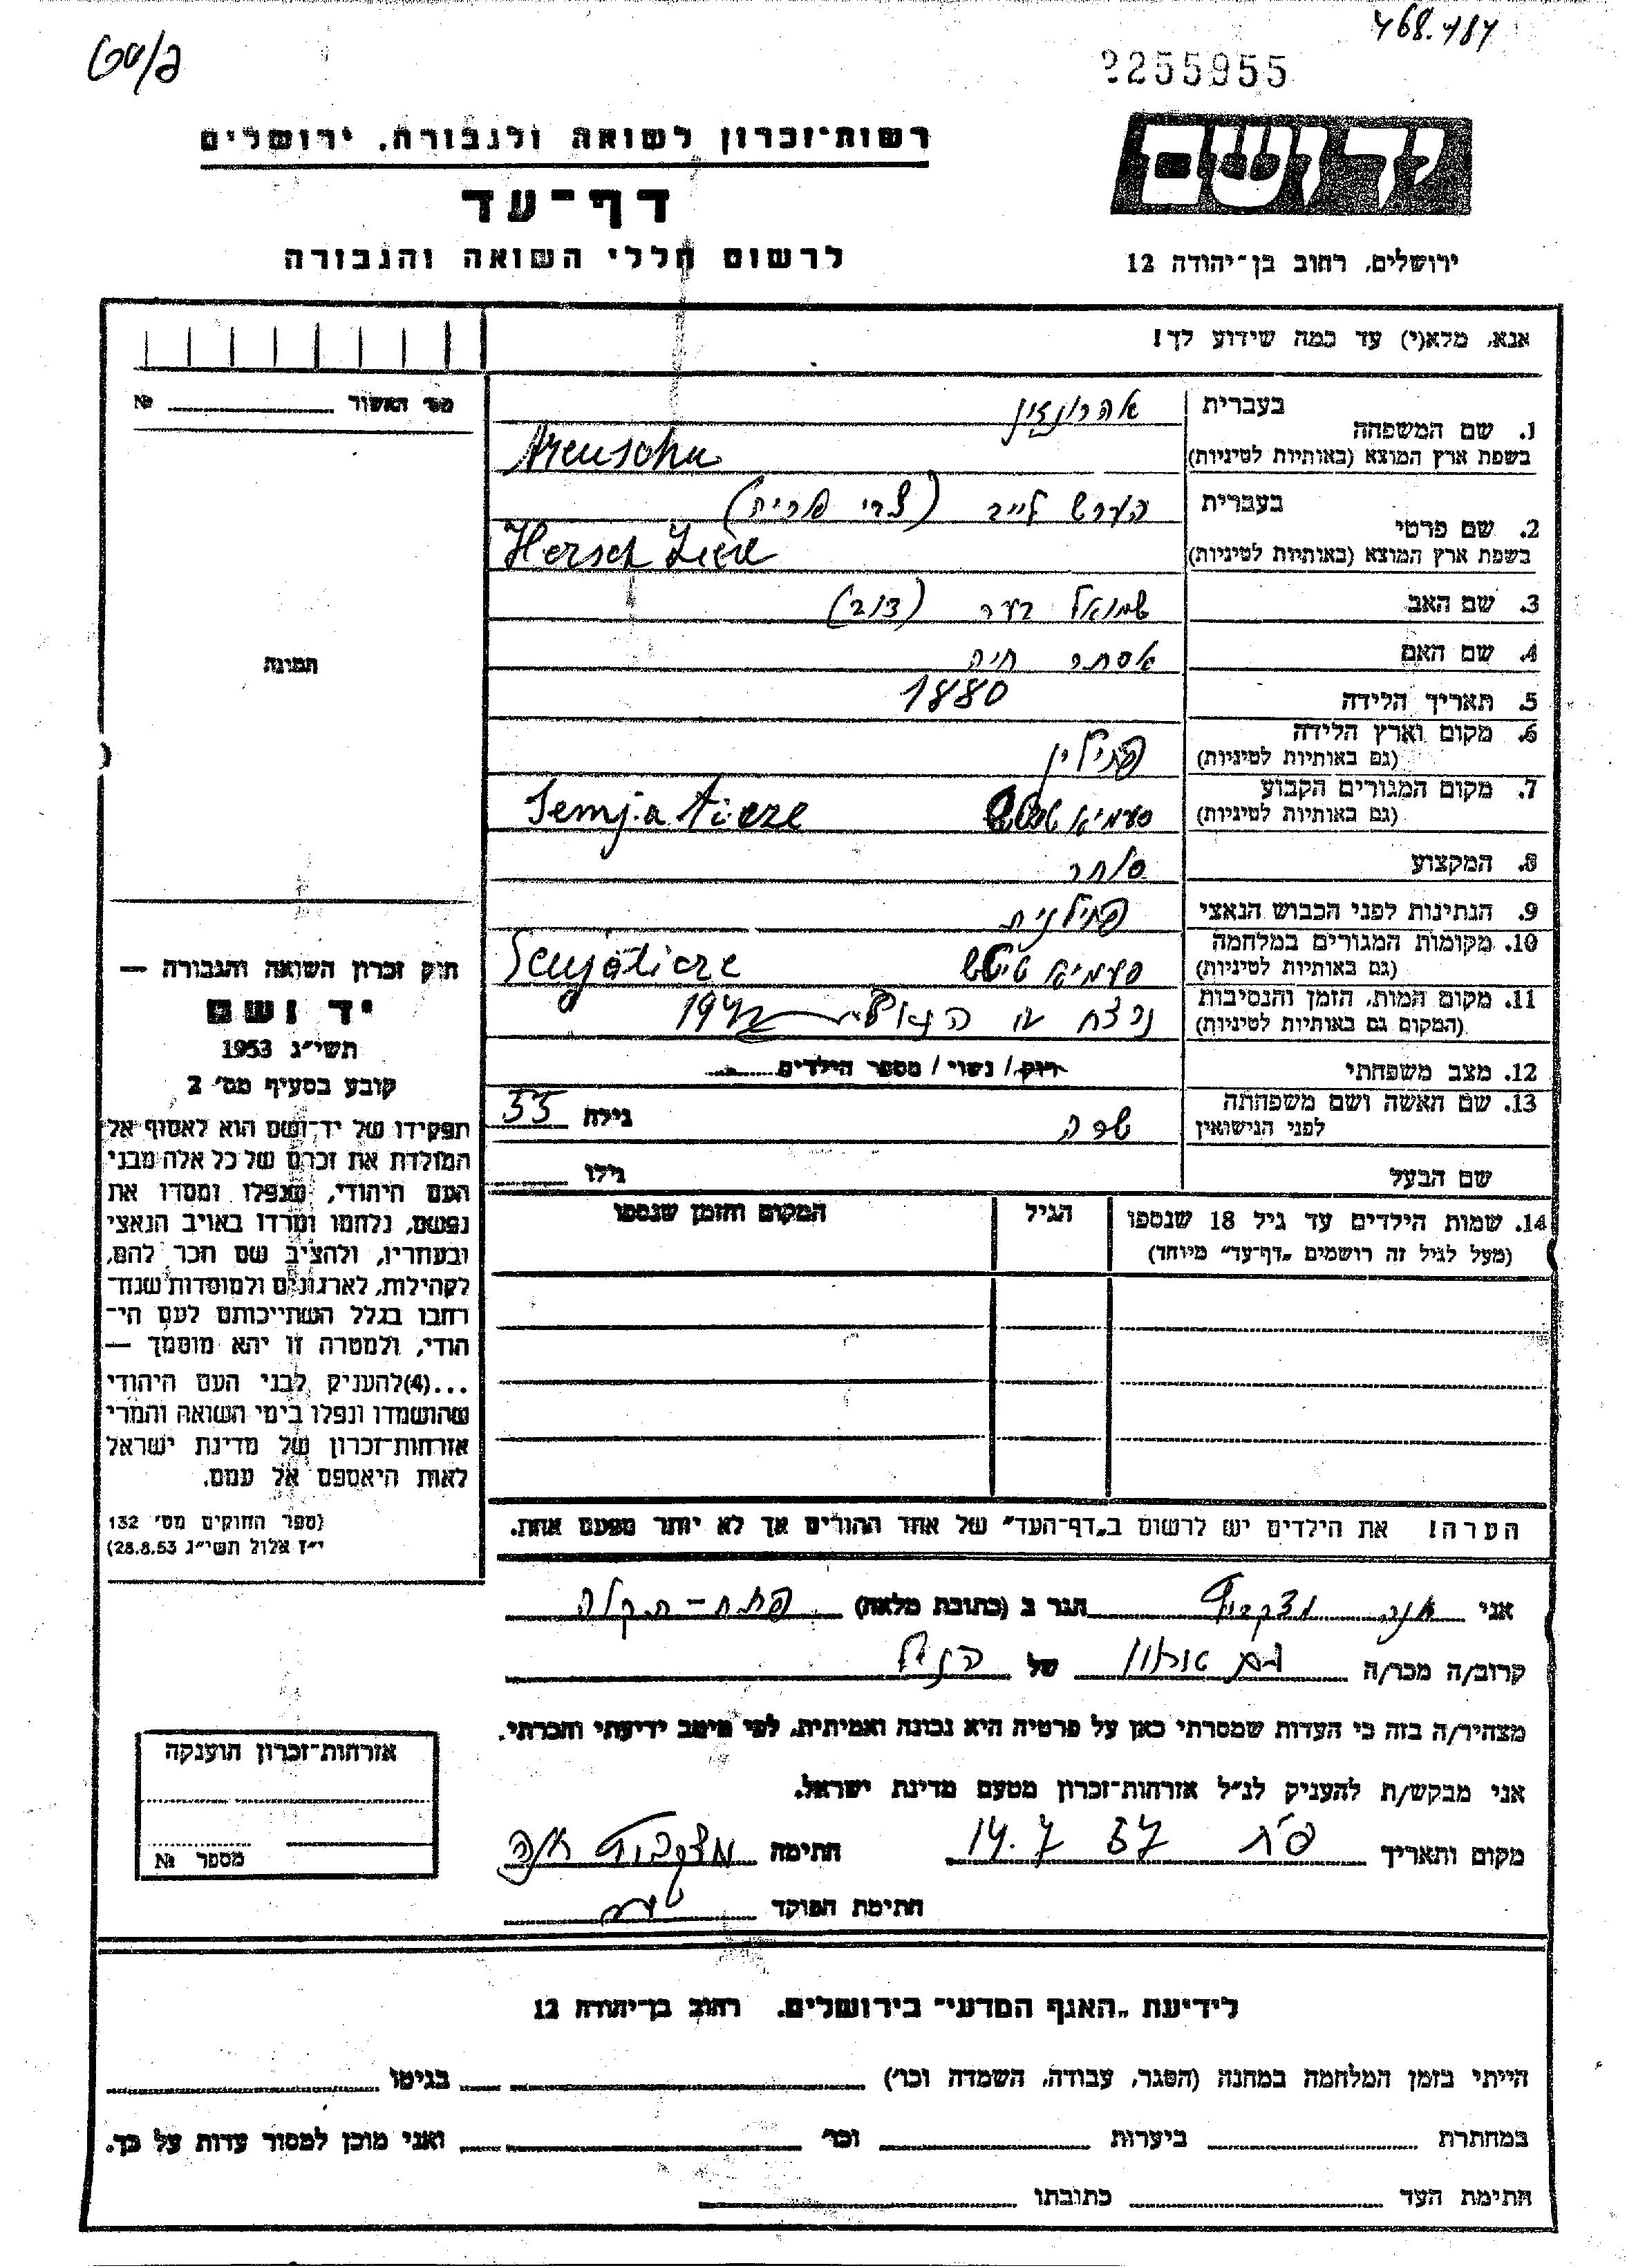 468.484
2255955
יד ושם
ירושלים, רחוב בן־יהודה 12
רשות־זכרון לשואה ולגבורה, ירושלים
דף־עד
לרשום חללי השואה והגבורה
אנא, מלא(י) עד כמה שידוע לך!
מס׳ האשור № 
1. שם המשפחה
בעברית אהרונזון
בשפת ארץ המוצא (באותיות לטיניות)
2. שם פרטי
בעברית הערש לייב
בשפת ארץ המוצא (באותיות לטיניות) Hersch
3. שם האב שמואל בער (דוב)
4. שם האם אסתר חיה
5. תאריך הלידה 1880
6. מקום וארץ הלידה
(גם באותיות לטיניות) פולין
7. מקום המגורים הקבוע
(גם באותיות לטיניות)
8. המקצוע סוחר
9. הנתינות לפני הכבוש הנאצי פולנית
10. מקומות המגורים במלחמה
(גם באותיות לטיניות)
11. מקום המות, הזמן והנסיבות
(המקום גם באותיות לטיניות) נרצח 1942
12. מצב משפחתי רווק / נשוי / מספר הילדים
13. שם האשה ושם משפחתה
לפני הנישואין שרה גילה 55
שם הבעל גילו
14. שמות הילדים עד גיל 18 שנספו
(מעל לגיל זה רושמים „דף־עד״ מיוחד)
הגיל
המקום והזמן שנספו
הערה! את הילדים יש לרשום ב„דף־העד״ של אחד ההורים אך לא יותר מפעם אחת.
תמונה
חוק זכרון השואה והגבורה —
יד ושם
תשי״ג 1953
קובע בסעיף מס׳ 2
תפקידו של יד־ושם הוא לאסוף אל
המולדת את זכרם של כל אלה מבני
העם היהודי, שנפלו ומסרו את
נפשם, נלחמו ומרדו באויב הנאצי
ובעוזריו, ולהציב שם וזכר להם,
לקהילות, לארגונים ולמוסדות שנח־
רבו בגלל השתייכותם לעם הי־
הודי, ולמטרה זו יהא מוסמך —
...(4)להעניק לבני העם היהודי
שהושמדו ונפלו בימי השואה והמרי
אזרחות־זכרון של מדינת ישראל
לאות היאספם אל עמם.
(ספר החוקים מס׳ 132
י״ז אלול תשי״ג 28.8.53)
אני הגר ב (כתובת מלאה) פתח־תקוה
קרוב/ה מכר/ה של הנ״ל
מצהיר/ה בזה כי העדות שמסרתי כאן על פרטיה היא נכונה ואמיתית, לפי מיטב ידיעתי והכרתי.
אני מבקש/ת להעניק לנ״ל אזרחות־זכרון מטעם מדינת ישראל.
מקום ותאריך 14.7 57 חתימה
חתימת הפוקד
אזרחות־זכרון הוענקה
מספר №
לידיעת „האגף המדעי״ בירושלים, רחוב בן־יהודה 12
הייתי בזמן המלחמה במחנה (הסגר, עבודה, השמדה וכו׳) בגיטו
במחתרת ביערות וכו׳ ואני מוכן למסור עדות על כך.
חתימת העד כתובתו